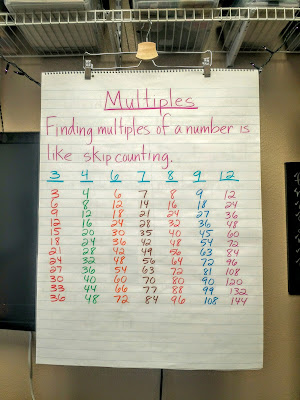 Multiples
Finding multiples of a number is
like skip counting.
3 4 6 7 8 9 12
3 4 6 7 8 9 12
6 8 12 14 16 18 24
9 12 18 21 24 27 36
12 16 24 28 32 36 48
15 20 30 35 40 45 60
18 24 36 42 48 54 72
21 28 42 49 56 63 84
24 32 48 56 64 72 96
27 36 54 63 72 81 108
30 40 60 70 80 90 120
33 44 66 77 88 99 132
36 48 72 84 96 108 144